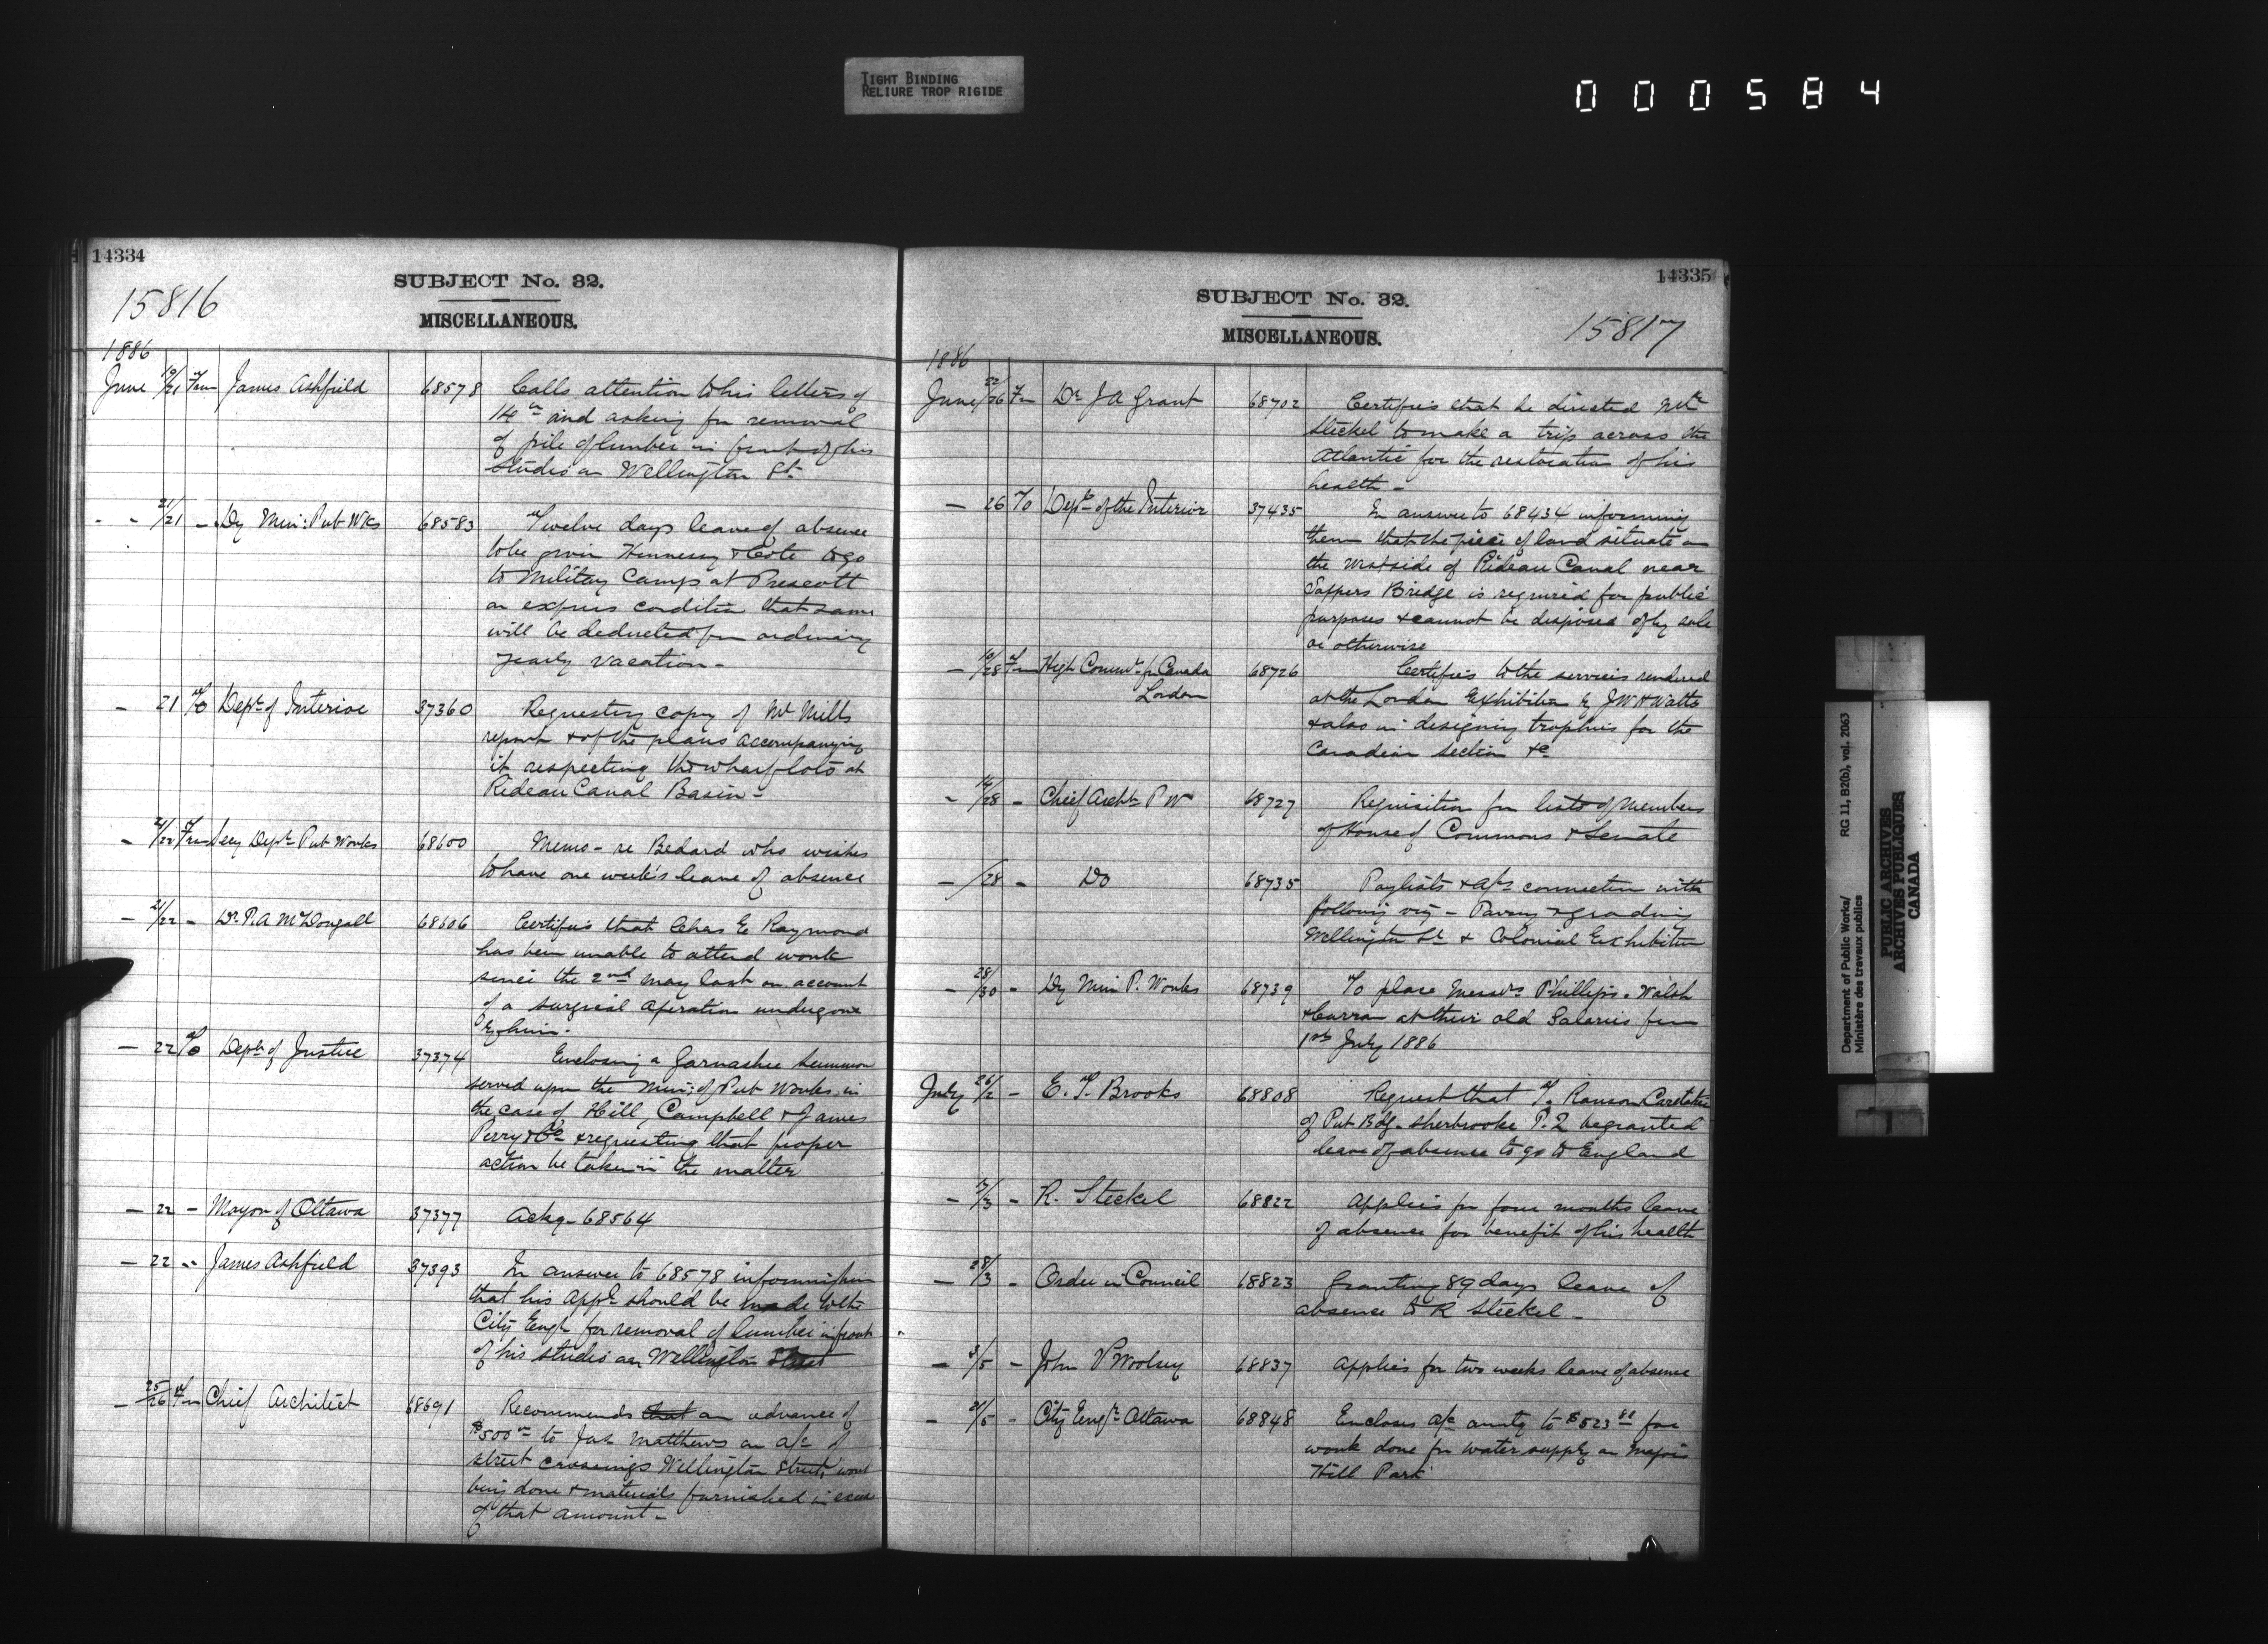 TIGHT BINDING
RELIURE TROP RIGIDE
000584
14334
SUBJECT No. 32.
15816
MISCELLANEOUS.
1886
June 19/21 From James Ashfield 68578 Calls attention to his letters of
14th and asking for removal
of pile of lumber in front of his
studio on Wellington St.
- - 21/21 - Dy Min: Pub Wks 68583 Twelve days leave of absence
to be given Hennessy & Cote to go
to Military Camp at Prescott
on express condition that same
will be deducted from ordinary
yearly vacation -
- 21 To Dept of Interior 37360 Requesting copy of Mr Mills
report & of the plans accompanying
it respecting the wharf lots at
Rideau Canal Basin -
- 21/22 From Secy Dept Pub Works 68600 Memo - re Bedard who wishes
to have one week's leave of absence
- 21/22 - Dr. P. A McDougall 68606 Certifies that Chas E Raymond
has been unable to attend work
since the 2nd May last on account
of a surgical operation undergone
by him.
- 22 To Dept of Justice 37374 Enclosing a Garnashee Summon
served upon the Min: of Pub Works in
the case of Hill, Campbell & James
Perry & Co & requesting that proper
action be taken in the matter
- 22 - Mayor of Ottawa 37377 Ackg - 68564
- 22 - James Ashfield 37393 In answer to 68578 informing him
that his appn should be made to the
City Engr for removal of lumber in front
of his studio on Wellington Street
- 25/26 Fm Chief Architect 68691 Recommends that an advance of
$500 to Jas Matthews on a/c of
street crossings Wellington Street, work
being done & materials furnished in excess
of that amount -
14335
SUBJECT No. 32.
15817
MISCELLANEOUS.
1886
June 22/26 Fm Dr J A Grant 68702 Certifies that he directed Mr
Steckel to make a trip across the
Atlantic for the restoration of his
health -
- 26 To Dept of the Interior 37435 In answer to 68434 informing
them that the piece of land situate on
the West side of Rideau Canal near
Sappers Bridge is required for public
purposes & cannot be disposed of by sale
or otherwise
- 10/28 Fm High Commr for Canada 68726 Certifies to the services rendered
London at the London Exhibition by J W H Watts
& also in designing trophies for the
Canadian Section &c
- 14/28 - Chief Archt P W 68727 Requisition for lists of members
of House of Commons & Senate
- /28 - Do 68735 Paylists & a/cs connection with
following viz - Paving & grading
Wellington St & Colonial Exhibition
- 28/30 - Dy Min P. Works 68739 To place Messrs Phillips, Walsh
& Curran at their old Salaries from
1st July 1886
July 26/2 - E. T. Brooks 68808 Request that T. Ranson Caretaker
of Pub Bdg - Sherbrooke P.Q begranted
leave of absence to go to England
- 2/3 - R. Steckel 68822 Applies for four months leave
of absence for benefit of his health
- 28/3 - Order in Council 68823 Granting 89 days leave of
absence to R Steckel -
- 3/5 - John P Woolsey 68837 Applies for two weeks leave of absence
- 21/5 - City Engr Ottawa 68848 Encloses a/c amtg to $523 88 for
work done for water supply on Majors
Hill Park
Department of Public Works/ RG 11, B2(b), vol. 2063
Ministère des travaux publics
PUBLIC ARCHIVES
ARCHIVES PUBLIQUES
CANADA